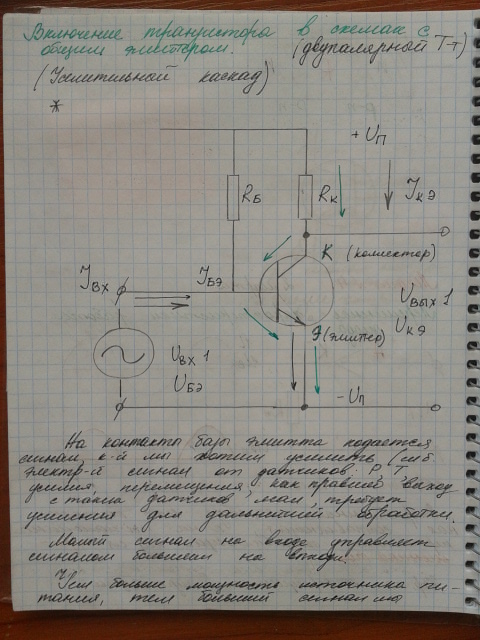 Включение транзистора в схемах с
общим эмиттером. (двупалярный Т-т)
(Усилительной каскад)
*
+Uп
RБ
RК
IКЭ
К (коллектор)
IВХ
IБЭ
UВЫХ 1
UКЭ
Э(эмиттер)
UВХ 1
UБЭ
-Uп
На контакты базы эмитта подается
сигнал к-й мы хотим усилить (либо
электр-й сигнал от датчиков P, T,
усилия, перемещения, как правило, выход
с таких датчиков мал и требует
усиления для дальнейшей обработки.
Малый сигнал на входе управляет
сигналом большим на выходе.
Чем больше мощность источника пи-
тания, тем больший сигнал мы